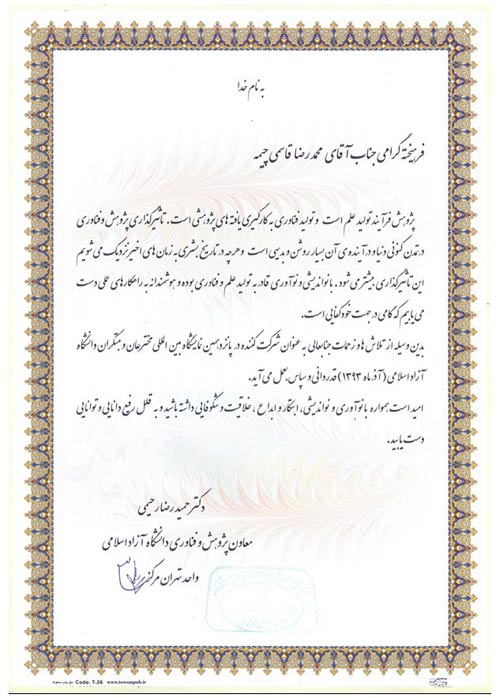 به نام خدا
فرهیختهٔ گرامی جناب آقای محمدرضا قاسمی چیمه
پژوهش فرآیند تولید علم است و تولید فناوری به کارگیری یافته های پژوهشی است. تأثیرگذاری پژوهش و فناوری
در تمدن کنونی دنیا و در آینده ی آن بسیار روشن و بدیهی است و هرچه در تاریخ بشری به زمان های اخیر نزدیک می شویم
این تأثیرگذاری بیشتر می شود. با نواندیشی و نوآوری قادر به تولید علم و فناوری بوده و هوشمندانه به راهکارهای علی دست
می یابیم که گامی در جهت خودکفایی است.
بدین وسیله از تلاش ها و زحمات جنابعالی به عنوان شرکت کننده در پانزدهمین نمایشگاه بین المللی مخترعان و مبتکران دانشگاه
آزاد اسلامی (آذرماه ۱۳۹۳) قدردانی و سپاس بعمل می آید.
امید است همواره با نوآوری و نواندیشی، ابتکار و ابداع، خلاقیت و شکوفایی داشته باشید و به قلل رفیع دانایی و توانایی
دست یابید.
دکتر حمیدرضا رحیمی
معاون پژوهش و فناوری دانشگاه آزاد اسلامی
واحد تهران مرکزی
Code: T-26 www.towsanpub.ir